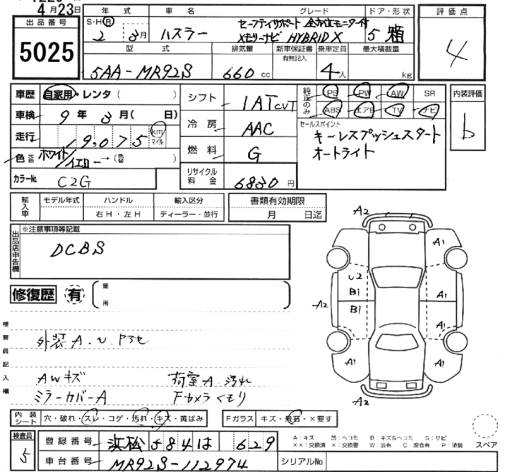 4月23日
出品番号 5025
年式 車名 グレード ドア・形状 評価点
S・H・R 2 3月 ハスラー セーフティサポート 全方位モニター付 メモリーナビ HYBRID X 5 箱 4
型式 排気量 新車保証書 乗車定員 最大積載量
有無記入
5AA-MR92S 660cc 4人 kg
車歴 自家用・レンタ( ) シフト 1AT CVT
PS PW AW SR 内装評価
ABS エアB TV ナビ b
車検 9年3月( 日) 冷房 AAC
セールスポイント
キーレスプッシュスタート
オートライト
走行 19,075 km マイル 燃料 G
色 ホワイト/イエロー→(色 )
カラーNo. C2G リサイクル料金 6830円
輸入車 モデル年式 ハンドル 輸入区分 書類有効期限
右H・左H ディーラー・並行 月 日迄
出品店申告欄 ※注意事項等記載
DCBS
修復歴 有 箇所
検査員記入欄
AWキズ 荷室A 汚れ
ミラーカバーA Fカメラくもり
A2
A1
A1
U2
B1
B1
A2
A2
A1
A1
A2
内装シート 穴・破れ・スレ・コゲ・汚れ・キズ・黄ばみ Fガラス キズ・飛石・×要す スペア
検査員 5 登録番号 浜松584は629
車台番号 MR92S-112974 シリアルNo.